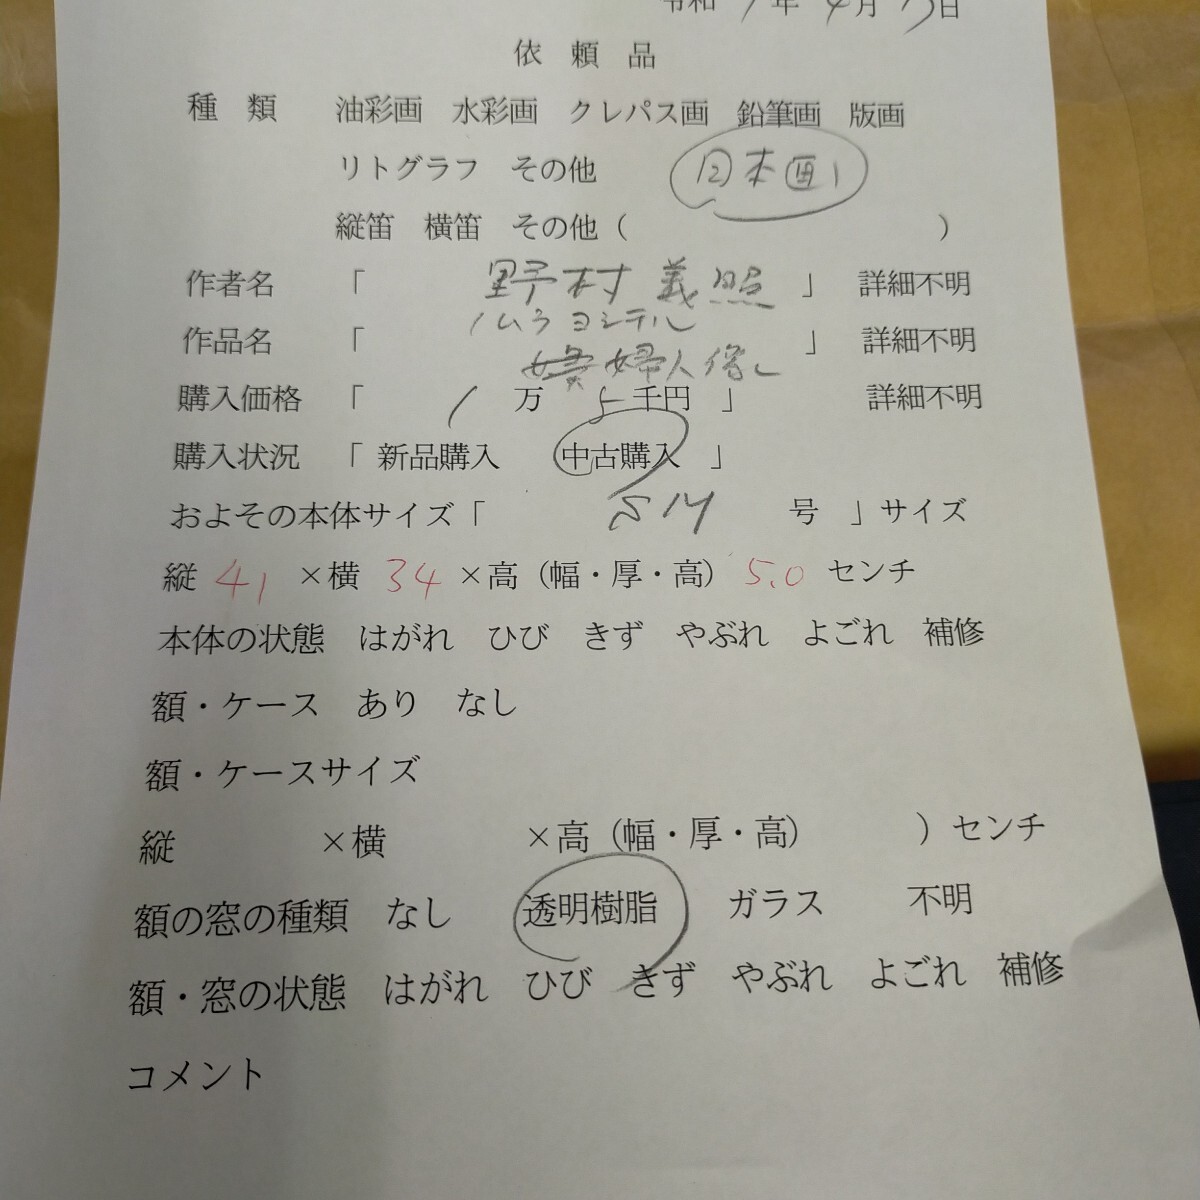 令和 7年 4月 13日
依 頼 品
種 類 油彩画 水彩画 クレパス画 鉛筆画 版画
リトグラフ その他 日本画
縦笛 横笛 その他( )
作者名 「 野村 義照 」 詳細不明
ノムラ ヨシテル
作品名 「 」 詳細不明
婦人像
購入価格 「 1 万 5 千円 」 詳細不明
購入状況 「 新品購入 中古購入 」
およその本体サイズ「 号 」サイズ
縦 41 ×横 34 ×高(幅・厚・高) 5.0 センチ
本体の状態 はがれ ひび きず やぶれ よごれ 補修
額・ケース あり なし
額・ケースサイズ
縦 ×横 ×高(幅・厚・高) )センチ
額の窓の種類 なし 透明樹脂 ガラス 不明
額・窓の状態 はがれ ひび きず やぶれ よごれ 補修
コメント